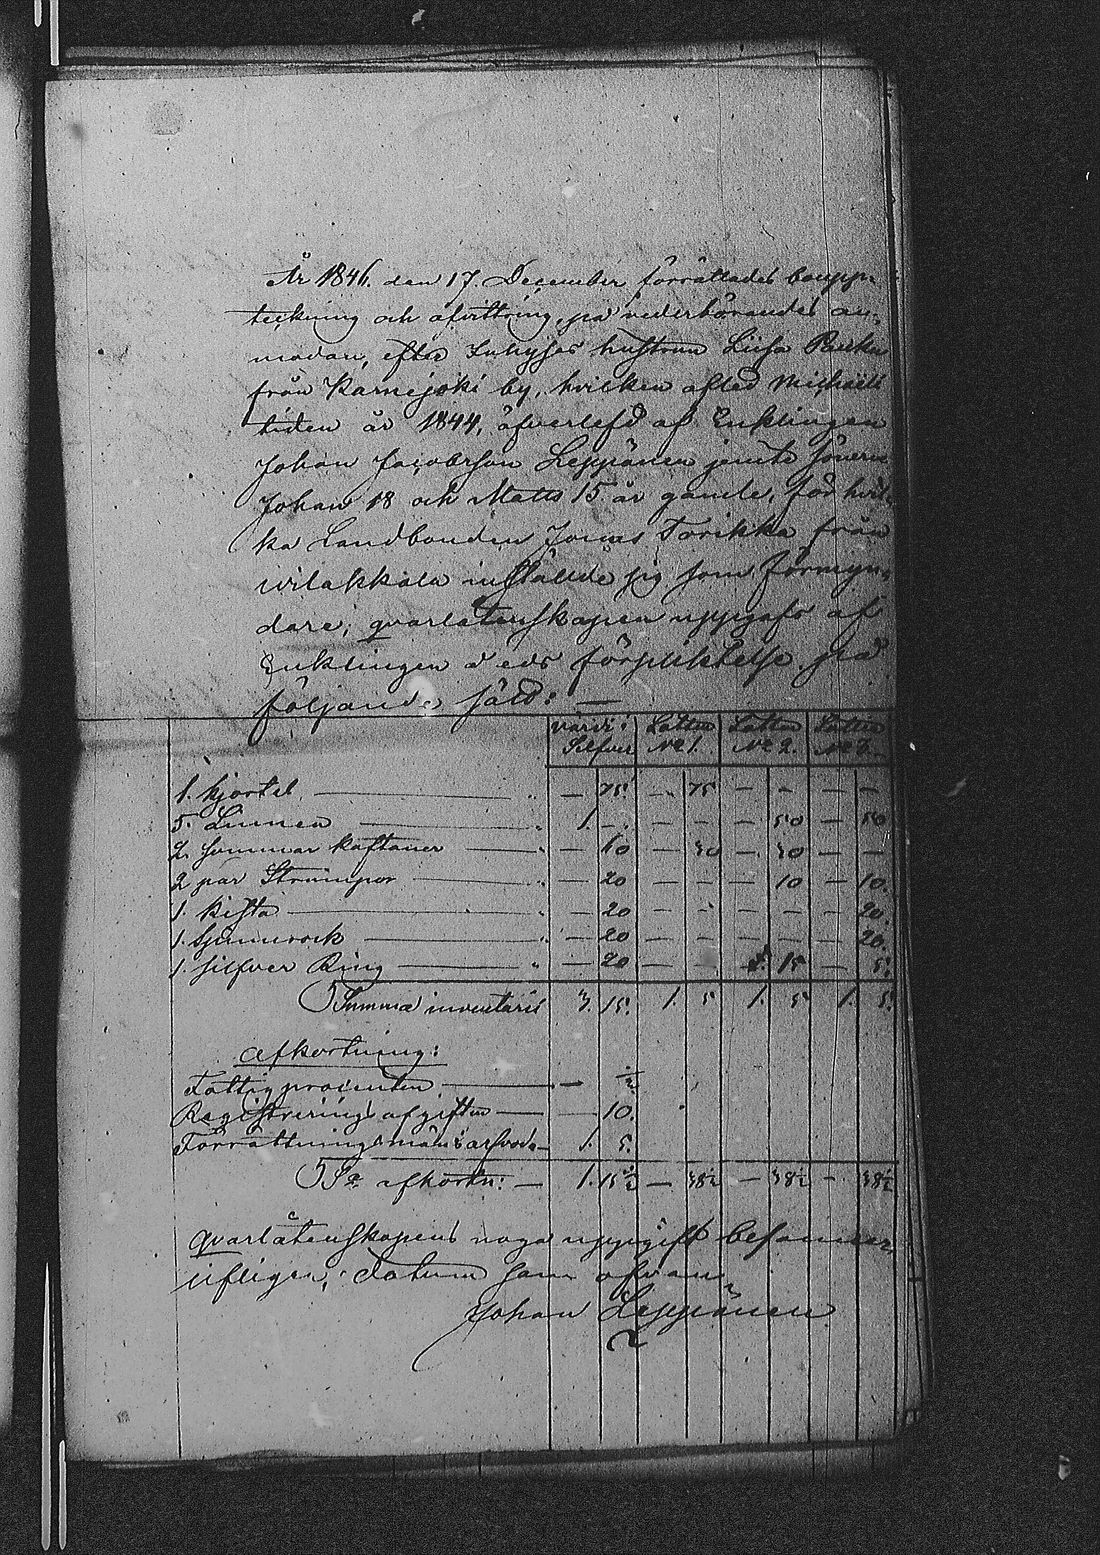 År 1846. den 17. December förrättades bouppe-
teckning och afvittring, på vederbörandes an-
modan, efter Inhyses hustrun Liisa
från Karnejoki by, hvilken afled Michaëli
tiden år 1844, öfverlefd af Enklingen
Johan Jacobsson Leppänen jemte sönerne
Johan 18 och Matts 15 år gamle, för hvil-
ka Landbonden Jonas Torikka från
Wilakkala inställde sig som Förmyn-
dare; qvarlåtenskapen uppgafs af
Enklingen å eds förpliktelse på
följande sätt: —
värdi: Silfver Lotten № 1. Lotten № 2. Lotten № 3.
1. kjortel — " — 75. — 75 — — — —
5. Linnen — " 1. — — — — 50 — 50
2. sommar kaftaner — " — 60 — 30 — 30 — —
2 par Strumpor — " — 20 — — — 10 — 10.
1. kista — " — 20 — — — — 20.
1. Spinnrock — " — 20 — — — — 20.
1. silfver Ring — " — 20 — — 15 — 5.
Summa inventarii 3. 15. 1. 5 1. 5 1. 5.
Afkortning:
Fattigprocenten — — ½
Registrerings afgiften — — 10.
Förrättningsmäns arfvode — 1. 5.
Sa afkortn: — 1. 15½ — 38½ — 38½ — 38½
Qvarlåtenskapens noga uppgift besannar
lifligen; Datum som ofvan
Johan Leppänen